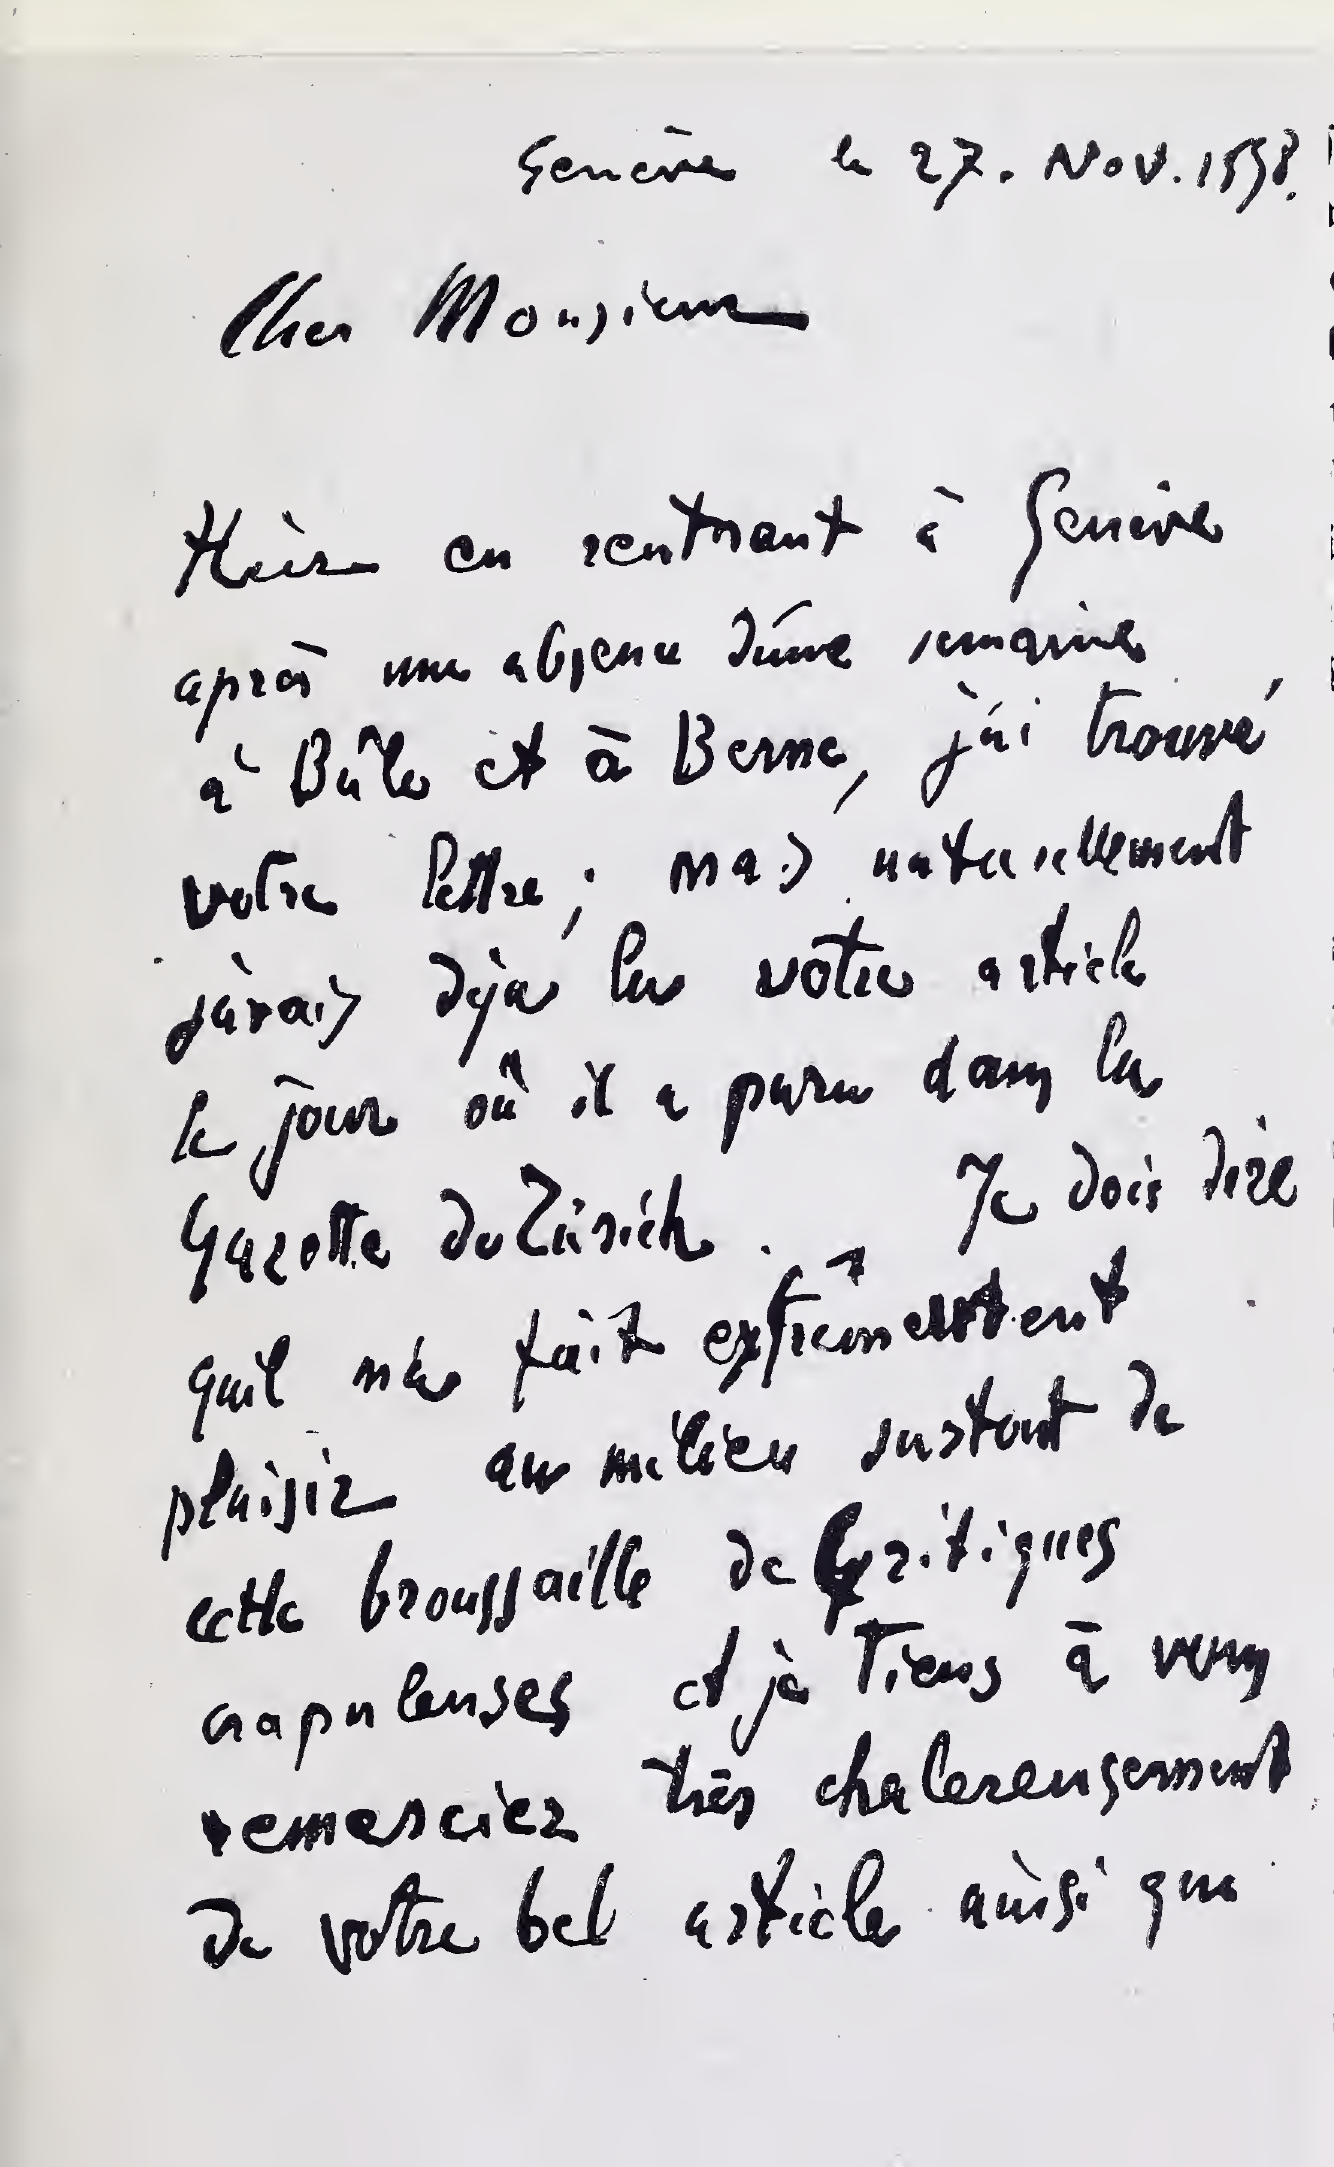 Genève le 27. Nov. 1898.
Cher Monsieur
Hier en rentrant à Genève
après une absence d'une semaine
à Bâle et à Berne, j'ai trouvé
votre lettre; mais naturellement
j'avais déjà lu votre article
le jour où il a paru dans la
Gazette de Zürich. Je dois dire
qu'il m'a fait extrêmement
plaisir au milieu surtout de
cette broussaille de critiques
crapuleuses et je tiens à vous
remerciez très chalereusement
de votre bel article ainsi que